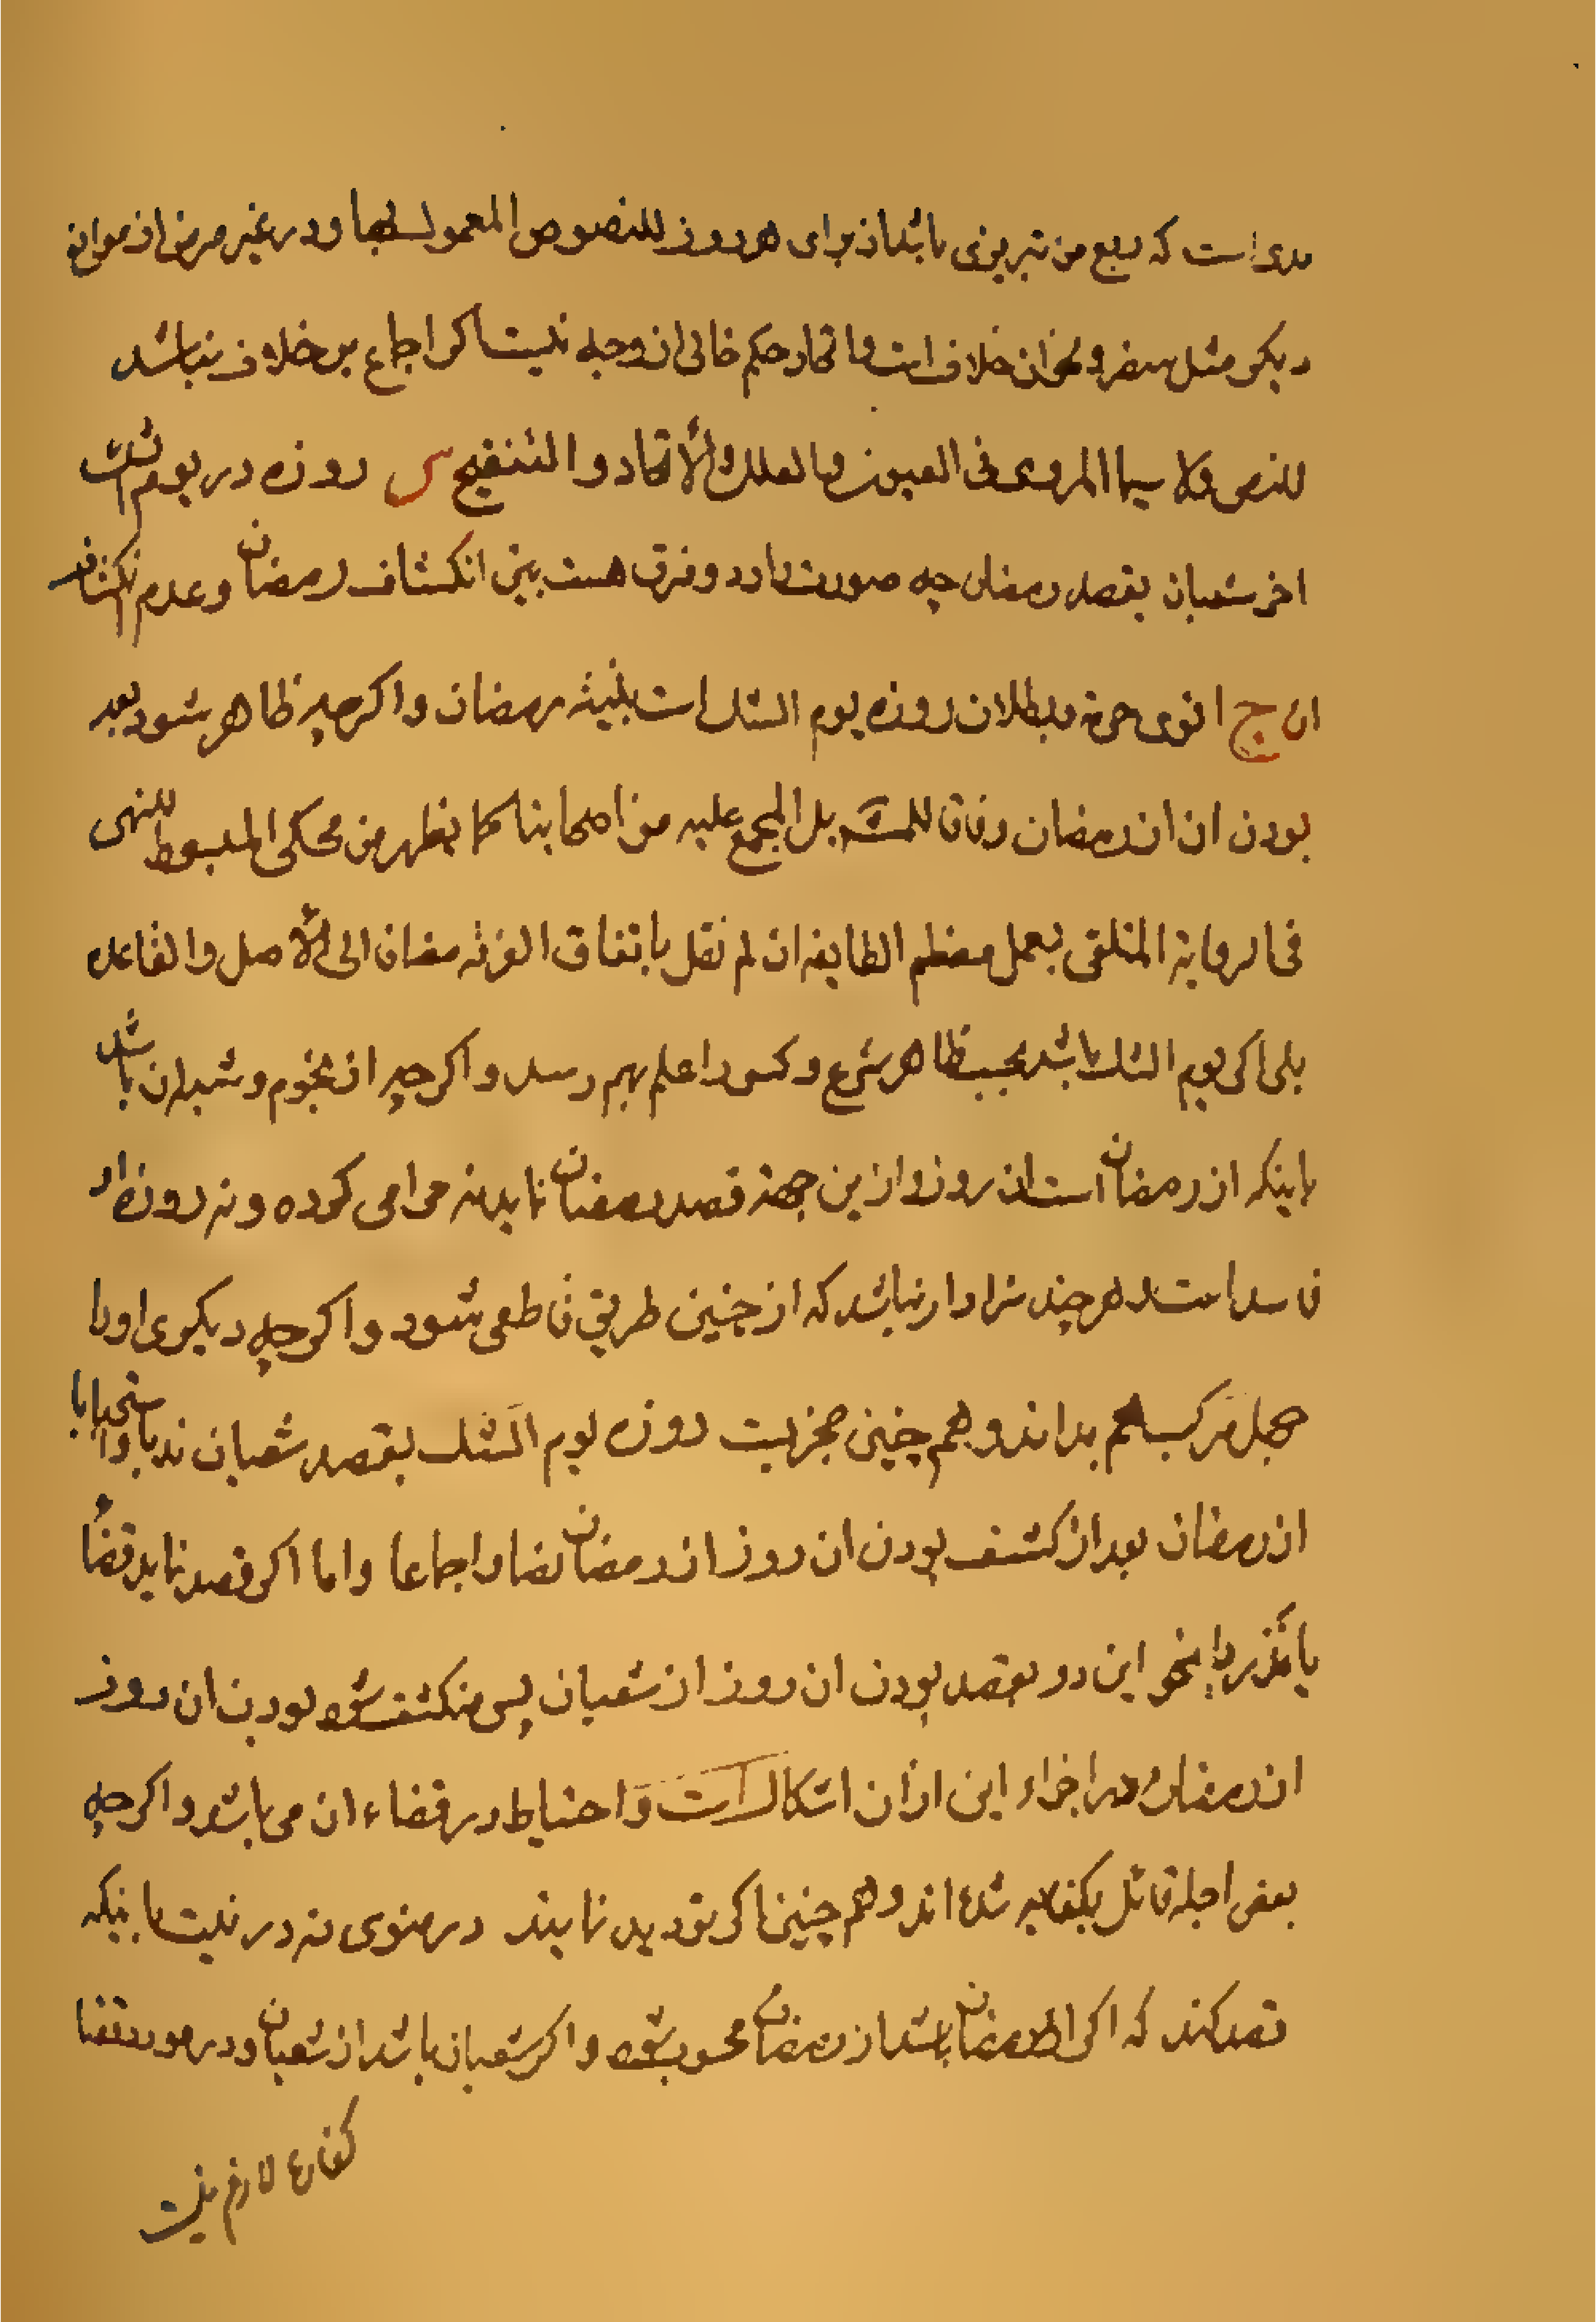 مدی است که ربع من تبریزی باشد از برای هر روز للنصوص المعمول بها و در غیر مرض از موانع
دیکر مثل سفر و نحو ان خلاف است و اتحاد حکم خالی از وجه نیست اکر اجماع بر خلاف نباشد
للنص ولا سیما المروی فی العیون و العلل و الاتحاد و التنقیح س روزه در یوم شک
اخر شعبان بقصد رمضان چه صورت دارد و فرق هست بین انکشاف رمضان و عدم انکشاف
ان ج اقوی حرمة و بطلان روزه یوم الشک است بنیة رمضان و اکر چه ظاهر شود بعد
بودن ان از رمضان وفاقا للمش بل المجمع علیه من اصحابنا کما یظهر من محکی المبسوط للنهی
فی الروایة المتلقی بعمل معظم الطایفه ان لم نقل باتفاق الفرقه مضافا الی الاصل والقاعده
بلی اکر یوم الشک باشد بحسب ظاهر شرع و کسی را علم بهم رسد و اکر چه از نجوم و شبه ان باشد
باینکه از رمضان است ان روز و ازین جهة قصد رمضان نماید نه حرامی کرده و نه روزه او
فاسد است هر چند سزاوار نباشد که از چنین طریق قاطع شود و اکر چه دیکری او را
جهل مرکب هم بداند و هم چنین مجزیست روزه یوم الشک بقصد شعبان ندبا و استحبابا
از رمضان بعد از کشف بودن ان روز از رمضان نصا و اجماعا و اما اکر قصد نماید قضاء
یا نذر یا نحو این دو بقصد بودن ان روز از شعبان پس منکشف شود بودن ان روز
از رمضان در اجزاء این از ان اشکال است و احتیاط در قضاء ان می باشد و اکر چه
بعض اجله قائل بکفایه شده اند و هم چنین اکر تردید نمایند در منوی نه در نیت باینکه
قصد کند که اکر رمضان باشد از رمضان محسوب شود و اکر شعبان باشد از شعبان و در صورت قضا
کفاره لازم نیست